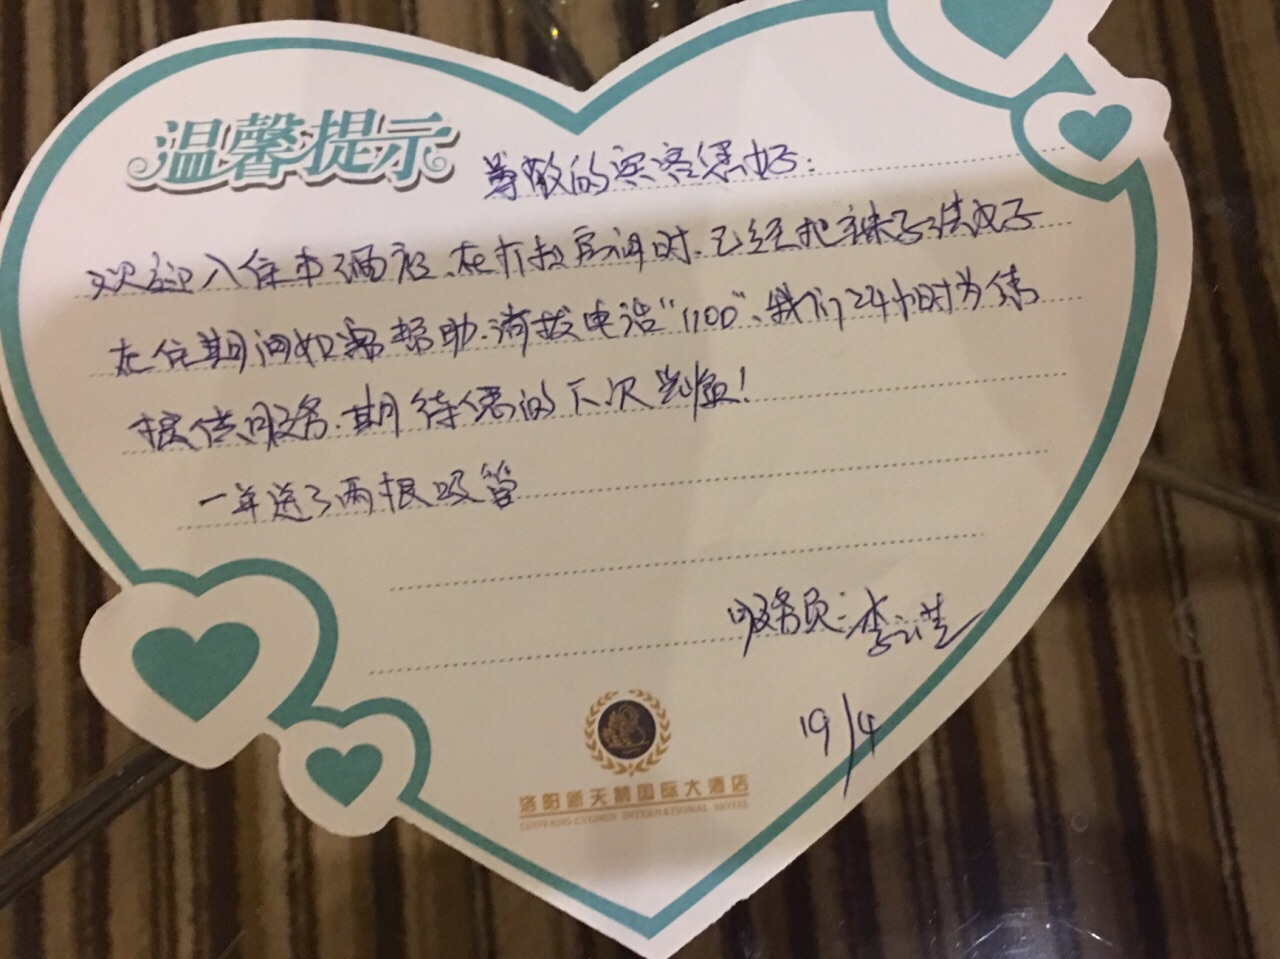 温馨提示
尊敬的宾客您好：
欢迎入住本酒店、在打扫房间时，已经把袜子洗成子
在住期间如需帮助，请拨电话“1100”、我们24小时为您
提供服务，期待您的下次光临！
一并送了两根吸管
服务员：李
19/4
洛阳新天鹅国际大酒店
LUOYANG CYGNUS INTERNATIONAL HOTEL